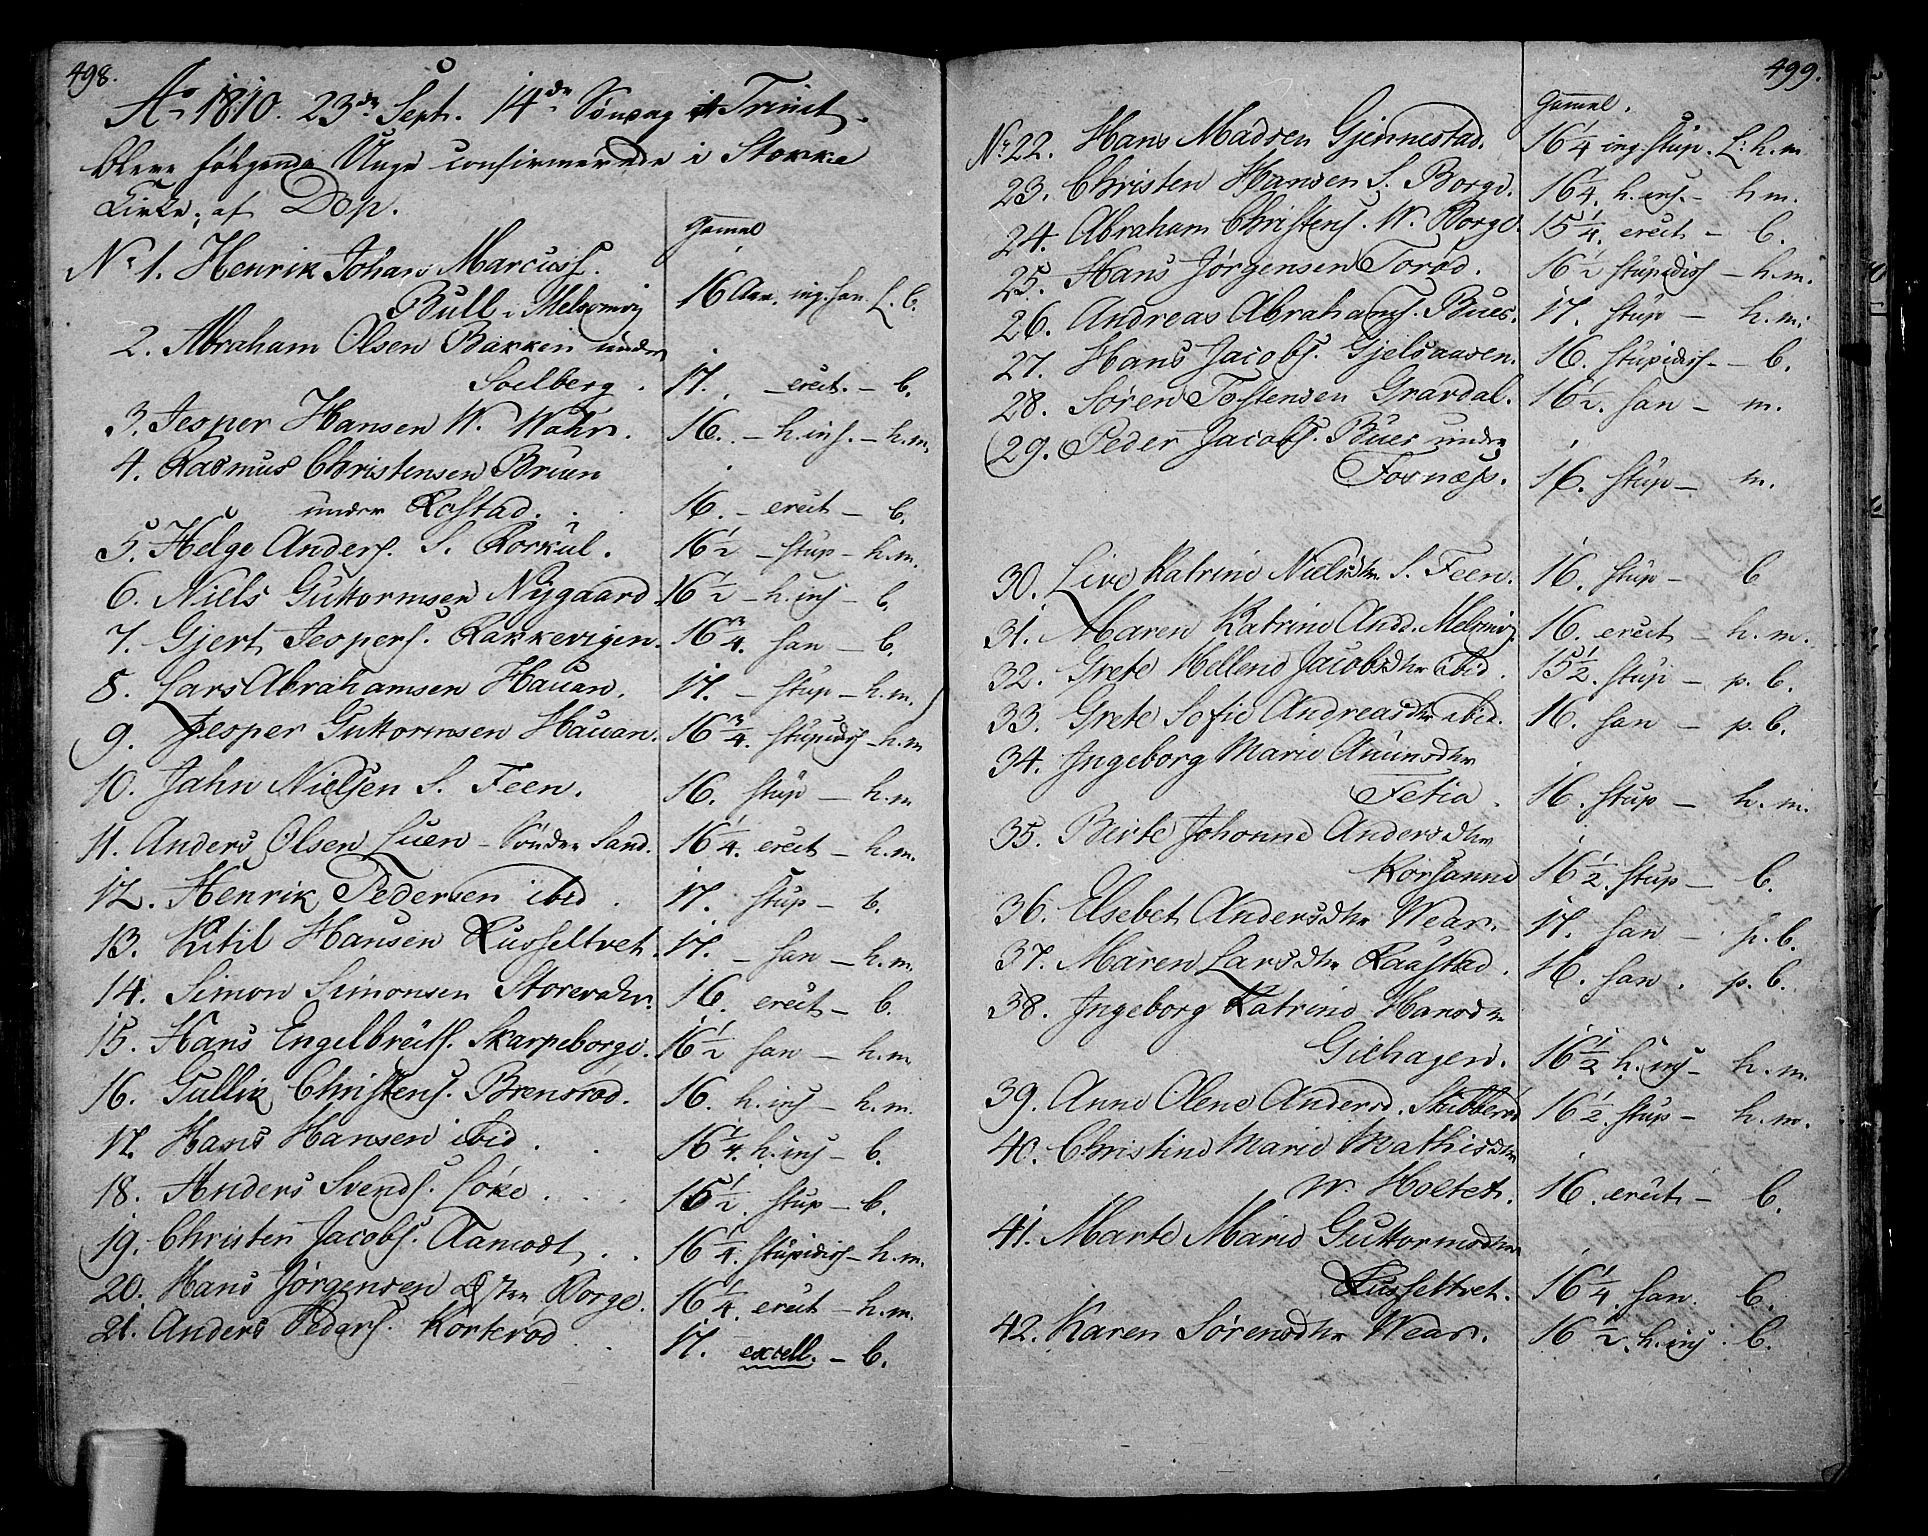 498.
Ao 1810. 23de Sept. 14de Søndag Trinit.
bleve følgende Unge confirmerede i Stokke
Kirke, af Dop.
Gammel
No 1. Henrik Johan Marcuss.
Bull i Melsomvig 16 Aar. ing. san. L. b.
2. Abraham Olsen Bakken under
Soelberg. 17. erut. - b.
3. Jesper Hansen W. Wøhr. 16. - h. ins. - h. m.
4. Rasmus Christensen Bruun
under Rostad. 16. - erut - b.
5. Helge Anders. S. Rorkul. 16 1/2 - stup - h. m.
6. Niels Guttormsen Nygaard. 16 1/2 - h. ins - b.
7. Gjert Jespers. Rakkevigen. 16 3/4. san - b.
8. Lars Abrahamsen Hauan. 17. - stup - h. m.
9. Jesper Guttormsen Hauan. 16 3/4. stupidiss - h. m
10. Jahn Nielsen S. Feen. 16. stup - h. m
11. Anders Olsen Luen - Sønder Sand. 16 1/4. erut - h. m.
12. Henrik Pedersen ibid. 17. stup - b.
13. Kitil Hansen Russeltvet. 17. - san - h. m.
14. Simon Simonsen Storevahr. 16. erut - b.
15. Hans Engelbreits. Skarpeborge. 16 1/2 san - h. m.
16. Gullik Christens. Brensrød. 16. h. ins - h. m.
17. Hans Hansen ibid. 16 1/4. h. ins - b.
18. Anders Svends. Løke. 15 1/2. stup - b.
19. Christen Jacobs. Aamodt. 16 1/4. stupidiss - h. m.
20. Hans Jørgensen Øster Borge. 16 1/4. erut - h. m.
21. Anders Peders. Korterød 17. excell. - b.
499.
Gammel.
No. 22. Hans Madsen Gjennestad. 16 1/4 ing. stup. L: h. m
23. Christen Hansen S. Borge. 16 1/4. h. ins. - h m.
24. Abraham Christens. W. Borge. 15 1/4. erut - b.
25. Hans Jørgensen Torød. 16 1/2 stupidiss - h. m.
26. Andreas Abrahams. Bues. 17. stup - h. m.
27. Hans Jacobs. Gjelsaasen. 16. stupidiss. - b.
28. Søren Tostensen Gravdal. 16 1/2. san - m.
29. Peder Jacobs. Bues under
Fornæss. 16. stup - m.
30. Live Katrine Nielsdtr. S. Feen. 16. stup - b
31. Maren Katrine And. Melsomvig. 16. erut - h. m.
32. Grete Hellene Jacobsdtr ibid. 15 1/2. stup - p. b.
33. Grete Sofie Andreasdtr ibid. 16. san - p. b.
34. Ingeborg Marie Auunsdtr
Fetia. 16. stup - h. m.
35. Birte Johanne Andersdtr
Korsanne 16 1/2. stup - b.
36. Elsebet Andersdtr Wear. 17. san - p. b.
37. Maren Larsdtr Raastad. 16. san. p. b.
38. Ingeborg Katrine Hansdtr
Giehagen. 16 1/2 h. ins - h. m.
39. Anne Olene Andersd. Skibberød 16 1/2. stup - h. m.
40. Christine Marie Mathisdtr
W. Holtet. 16. erut - b.
41. Marte Marie Guttormsdtr
Russeltvet. 16 1/4. san. b.
42. Karen Sørensdtr Wear. 16 1/2. h. ins. b.